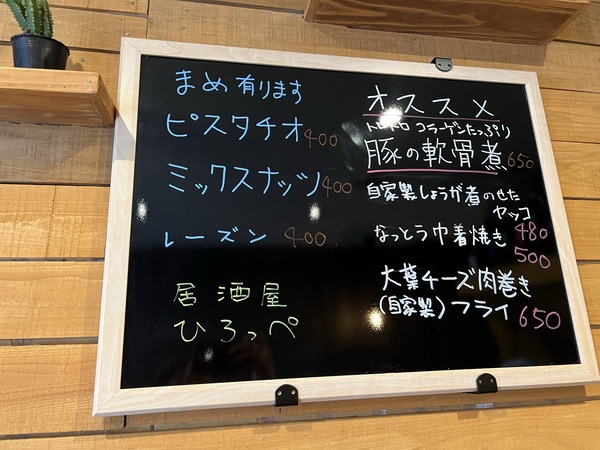 まめ有ります
ピスタチオ 400
ミックスナッツ 400
レーズン 400
居酒屋
ひろっぺ
オススメ
トロトロ コラーゲンたっぷり
豚の軟骨煮 650
自家製しょうが煮のせた
ヤッコ 480
なっとう巾着焼き 500
大葉チーズ肉巻き
(自家製)フライ 650